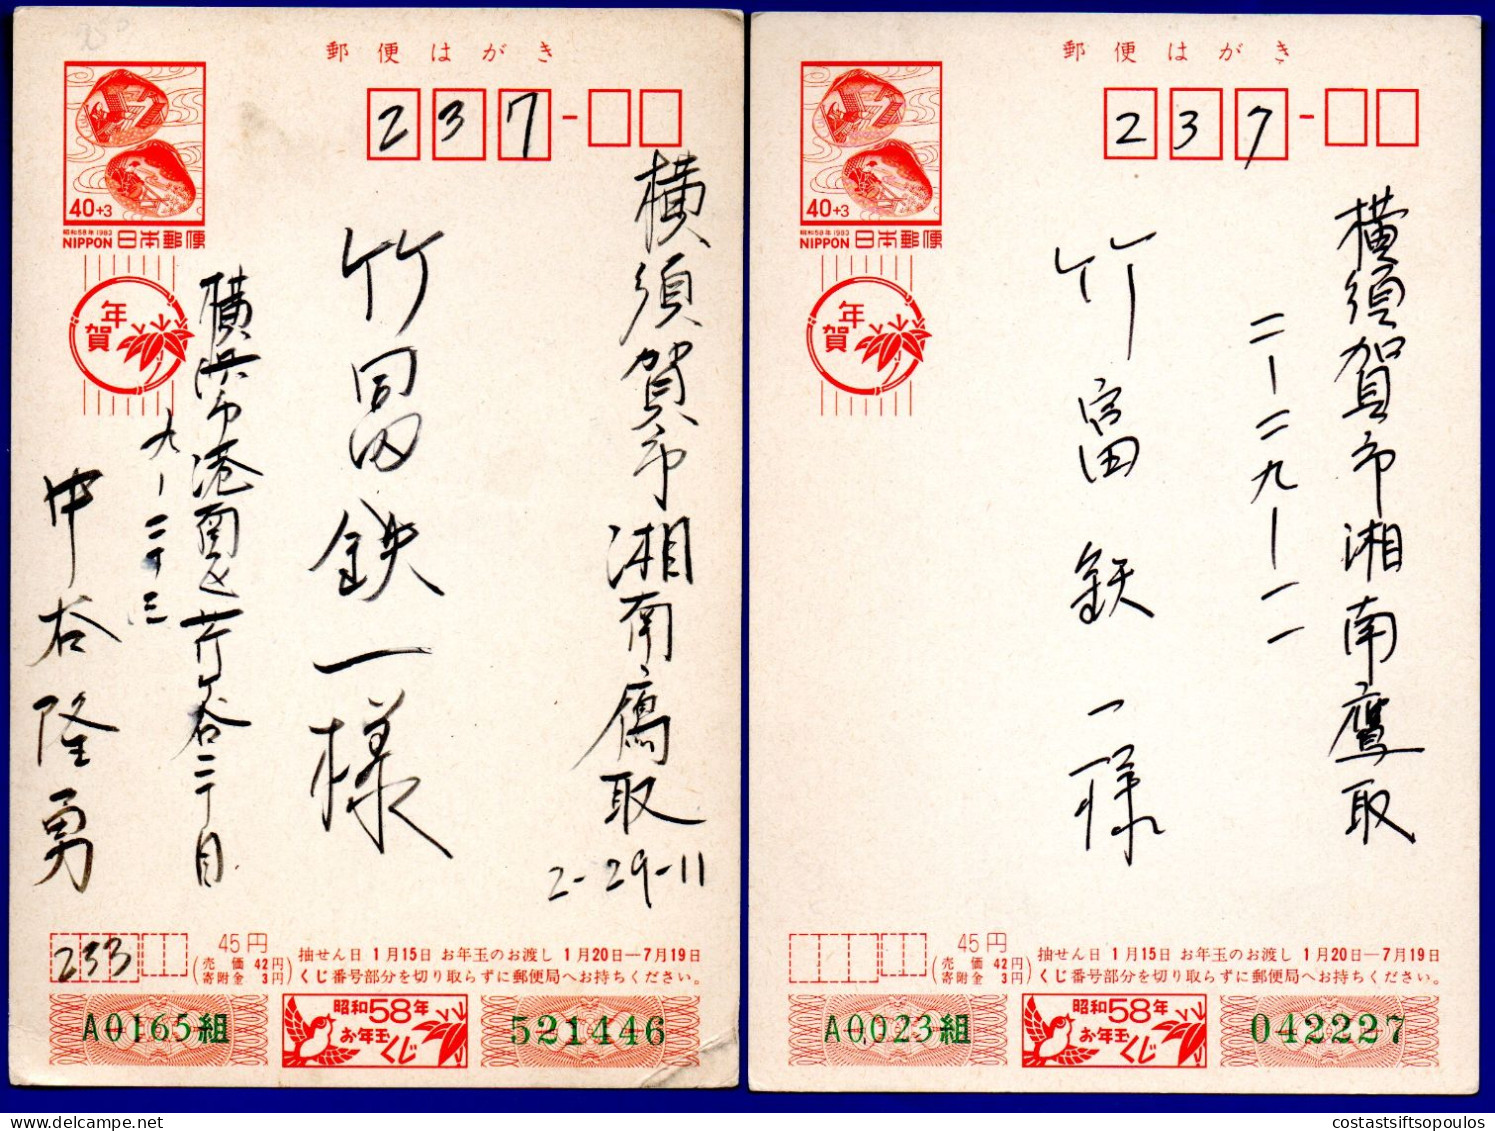 郵便はがき
40+3
昭和58年1983
NIPPON 日本郵便
年賀
237
横須賀市湘南鷹取
2-29-11
竹冨鉄一様
横浜市港南区芹ヶ谷二丁目
九-二十三
中谷隆勇
233
45円
(売価42円
寄附金3円)
抽せん日 1月15日 お年玉のお渡し 1月20日—7月19日
くじ番号部分を切り取らずに郵便局へお持ちください。
A0165組
昭和58年
お年玉くじ
521446
郵便はがき
40+3
昭和58年1983
NIPPON 日本郵便
年賀
237
横須賀市湘南鷹取
二-二九-一一
竹富鉄一様
45円
(売価42円
寄附金3円)
抽せん日 1月15日 お年玉のお渡し 1月20日—7月19日
くじ番号部分を切り取らずに郵便局へお持ちください。
A0023組
昭和58年
お年玉くじ
042227
delcampe.net
costastsiftsopoulos